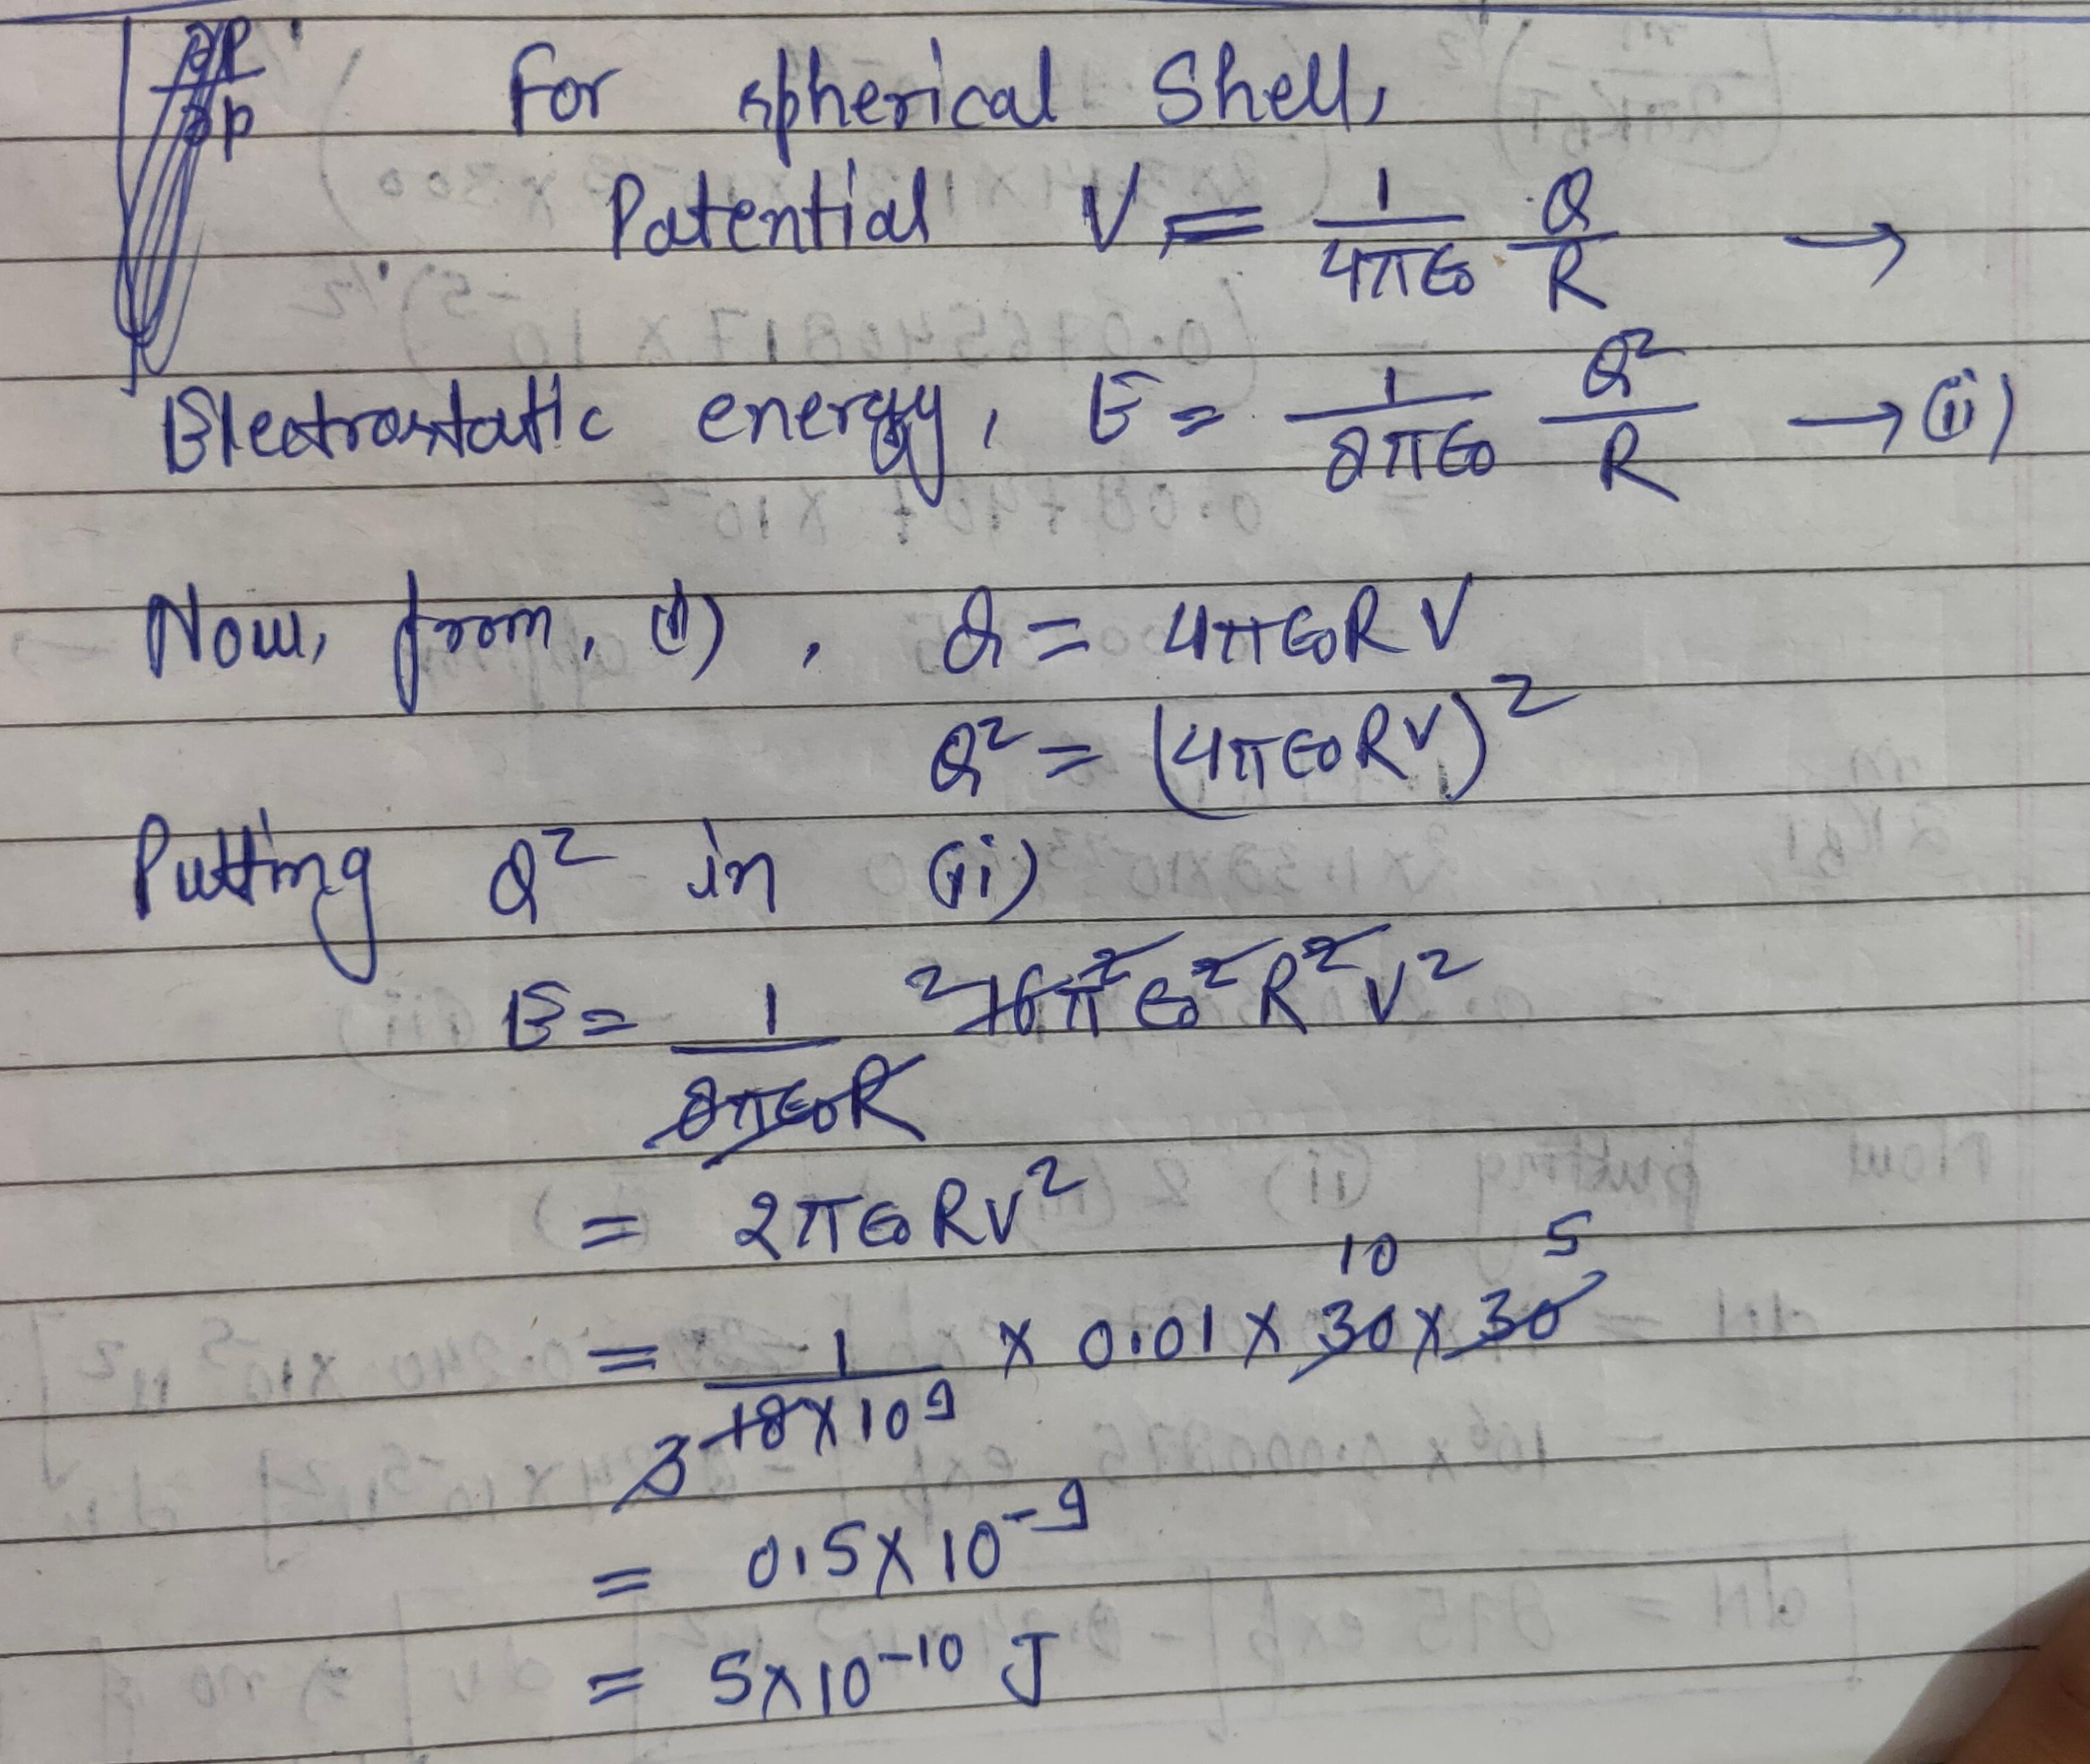 ∂P
∂p
For spherical Shell,
Patential V = 1/4πϵ₀ Q/R →
Electrostatic energy, E = 1/8πϵ₀ Q²/R → (ii)
Now, from, (i), Q = 4πϵ₀RV
Q² = (4πϵ₀RV)²
Putting Q² in (ii)
E = 1/8πϵ₀R 2 16π²ϵ₀²R²V²
= 2πϵ₀RV²
10 5
= 1/18×10⁹ × 0.01 × 30 × 30
3
= 0.5×10⁻⁹
= 5×10⁻¹⁰ J